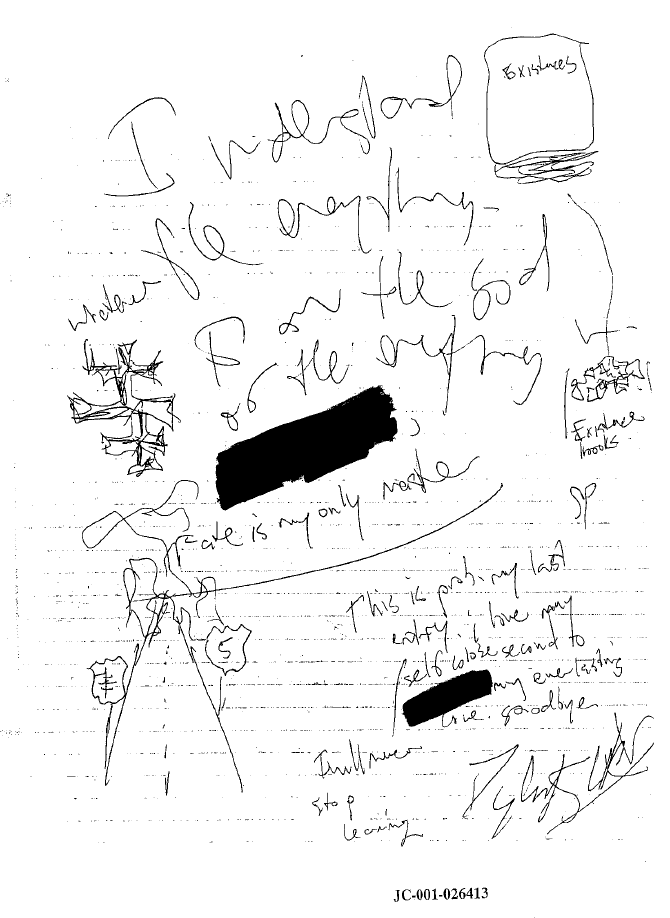 Existences
I understand
the everything.
I am the god
of the everything
whatever
Existence
books
Fate is my only master
This is prob. my last
entry. i love my
self close second to
my everlasting
love. goodbye
5
I will never
stop
JC-001-026413